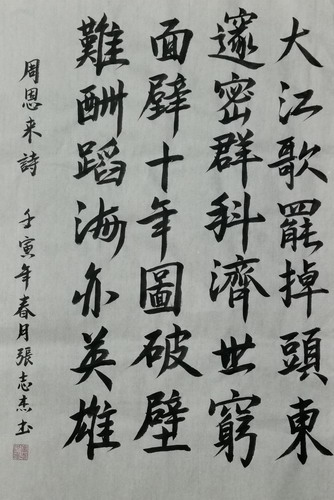 大江歌罷掉頭東
邃密群科濟世窮
面壁十年圖破壁
難酬蹈海亦英雄
周恩来詩 壬寅年春月張志杰书